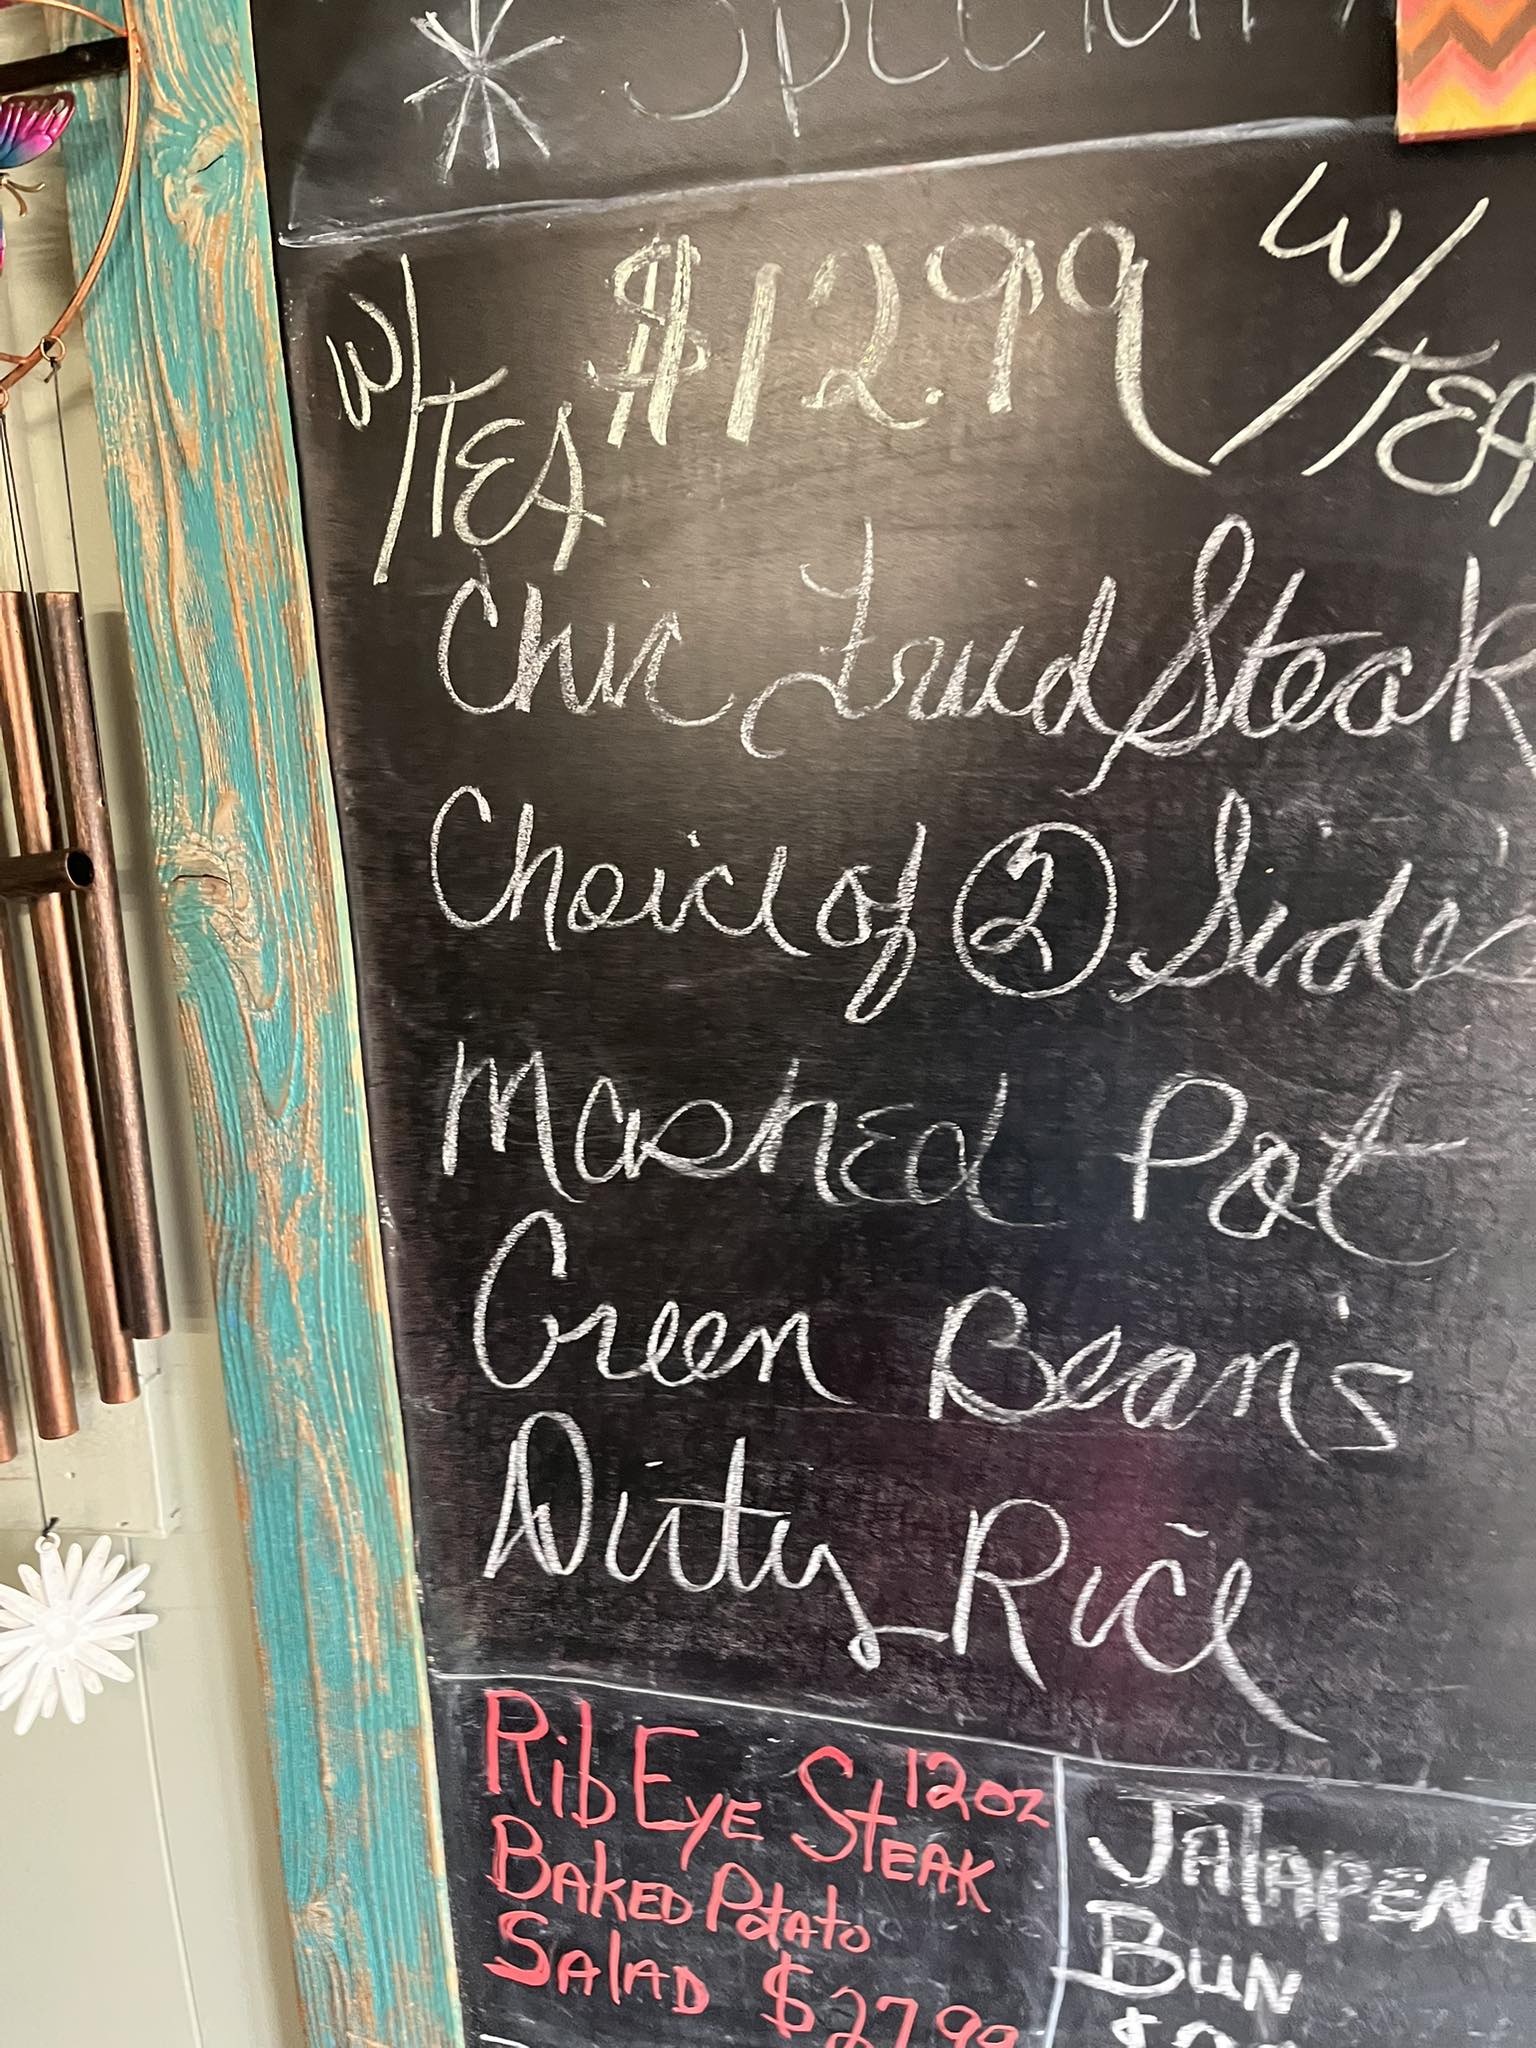 * Special
W/TEA $12.99 W/TEA
Chic Fried Steak
Choice of 2 Side's
Mashed Pot
Green Bean's
Dirty Rice
Rib Eye Steak 12oz
Baked Potato
Salad $27.99
Jalapeno
Bun